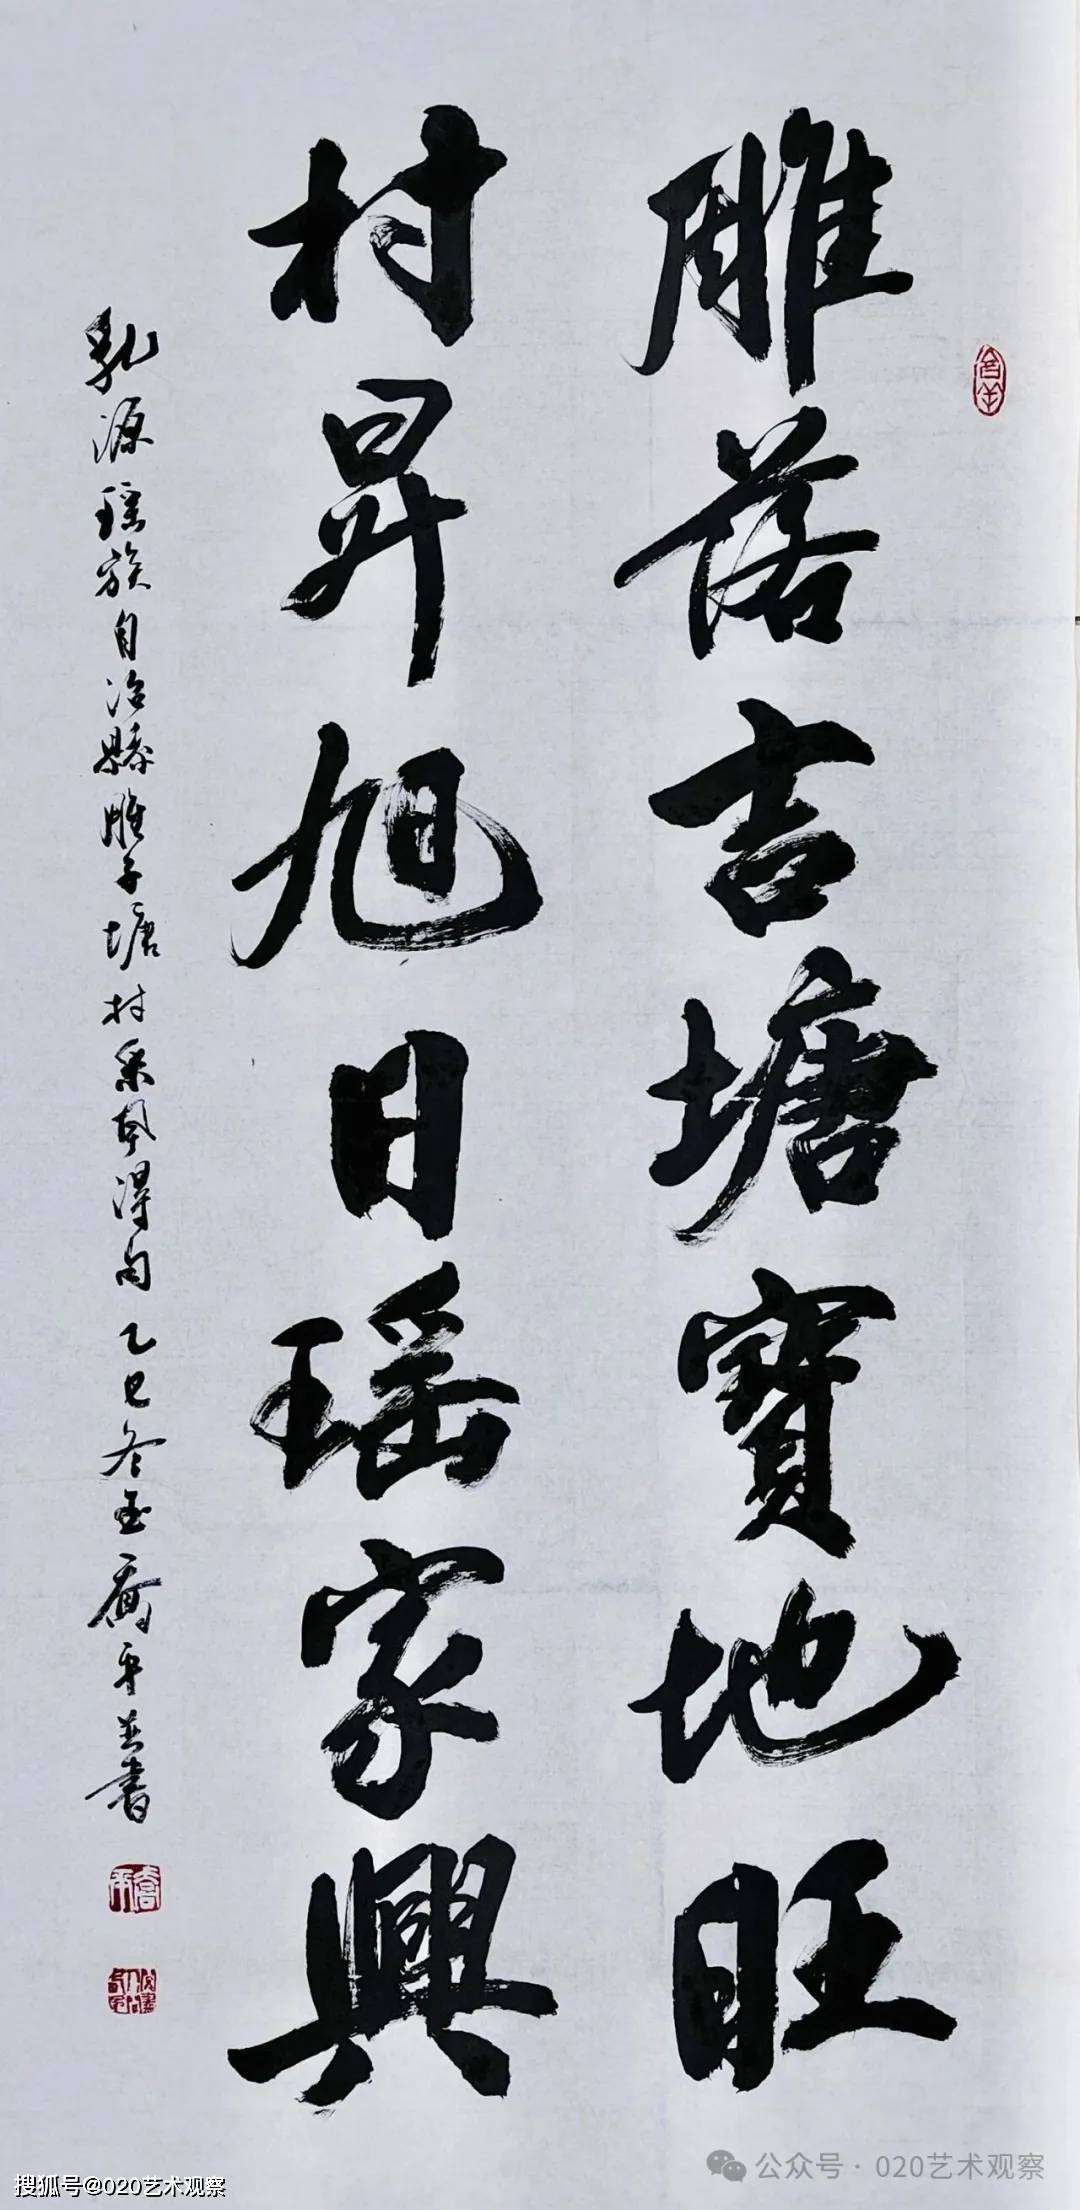 雕落吉塘寶地旺
村昇旭日瑶家興
乳源瑶族自治縣雕子塘村采風得句 乙巳冬至喬平并書
公众号·020艺术观察
搜狐号@020艺术观察